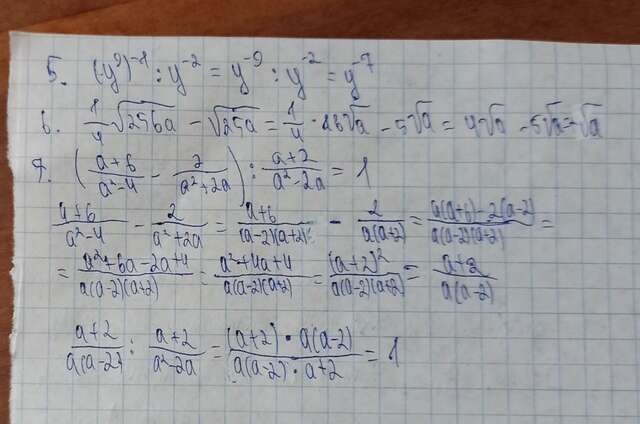 5. (-y⁹)⁻¹ : y⁻² = y⁻⁹ : y⁻² = y⁻⁷
6. 1/4 √256a − √25a = 1/4 · 16√a − 5√a = 4√a − 5√a = √a
7. ((a+6)/(a²−4) − 2/(a²+2a)) : (a+2)/(a²−2a) = 1
(a+6)/(a²−4) − 2/(a²+2a) = (a+6)/((a−2)(a+2)) − 2/(a(a+2)) = (a(a+6)−2(a−2))/(a(a−2)(a+2)) =
= (a²+6a−2a+4)/(a(a−2)(a+2)) = (a²+4a+4)/(a(a−2)(a+2)) = (a+2)²/(a(a−2)(a+2)) = (a+2)/(a(a−2))
(a+2)/(a(a−2)) : (a+2)/(a²−2a) = ((a+2) · a(a−2))/(a(a−2) · a+2) = 1